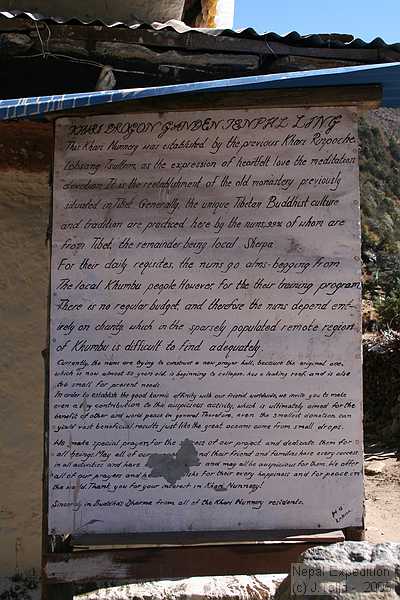 KHARI DROGON GANDEN TENPHL LING
This Khari Nunnery was established by the previous Khari Rinpoche
Lobsang Tsultrim, as the expression of heartfelt love the meditation
devotion. It is the reestablishment of the old monastery previously
situated in Tibet. Generally, the unique Tibetan Buddhist culture
and tradition are practiced here by the nuns, 99% of whom are
from Tibet, the remainder being local Sherpa
For their daily reqisites, the nuns go alms-begging from
The local Khumbu people however, for the their training program
There is no regular budget, and therefore the nuns depend ent-
irely on charity, which in the sparsely populated remote region
of Khumbu is difficult to find adequately.
Currently, the nuns are trying to construct a new prayer hall, because the original one,
which is now almost 35 years old, is beginning to collapse, has a leaking roof, and is also
too small for present needs.
In order to establish the good karmic affinity with our friend worldwide, we invite you to make
even a tiny contribution to this auspicious activity, which is ultimately aimed for the
benefit of other and world peace in general. Therefore, even the smallest donation can
yield vast beneficial results, just like the great oceans come from small drops.
We make special prayer for the success of our project and dedicate them for
all beings. May all of our and their friend and families have every success
in all activities and have and may all be auspicious for them. We offer
all of our prayers and for their every happiness and for peace on
the world. Thank you for your interest in Khari Nunnery!
Sincerely in Buddha's Dharma from all of the Khari Nunnery residents.
Nepal Expedition
(c) J. - 2005